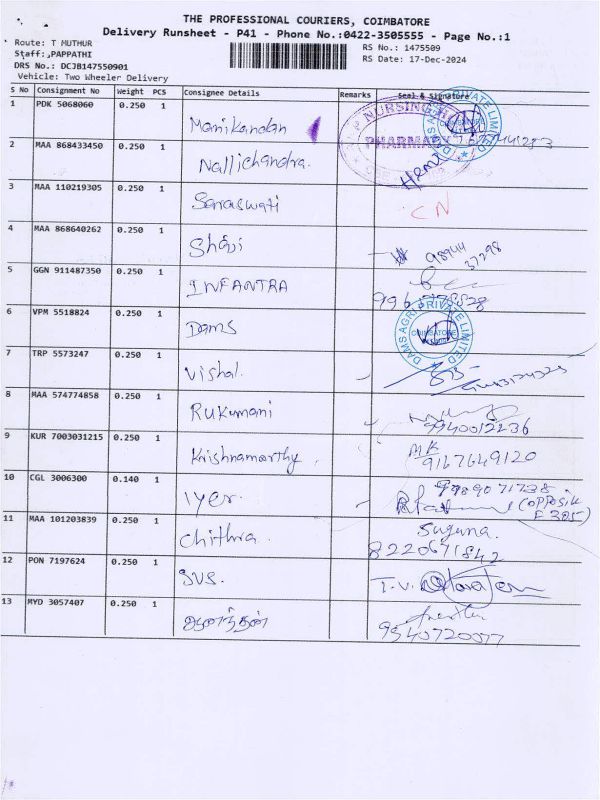 THE PROFESSIONAL COURIERS, COIMBATORE
Delivery Runsheet - P41 - Phone No.:0422-3505555 - Page No.:1
Route: T MUTHUR
RS No.: 1475509
Staff: ,PAPPATHI
RS Date: 17-Dec-2024
DRS No.: DCJB147550901
Vehicle: Two Wheeler Delivery
S No Consignment No Weight PCS Consignee Details Remarks Seal & Signature
1 PDK 5068060 0.250 1 Manikandan
NURSING
PHARMA
2 MAA 868433450 0.250 1 Nallichandra.
3 MAA 110219305 0.250 1 Saraswati CN
4 MAA 868640262 0.250 1 Shavi 98944 37298
5 GGN 911487350 0.250 1 INFANTRA
6 VPM 5518824 0.250 1 Dams
DAMS AGRI PRIVATE LIMITED
COIMBATORE
7 TRP 5573247 0.250 1 Vishal.
8 MAA 574774858 0.250 1 Rukumani
9940012236
9 KUR 7003031215 0.250 1 Krishnamorthy. MK
9167649120
10 CGL 3006300 0.140 1 Iyer. 9989071738
(opposite
F 305)
11 MAA 101203839 0.250 1 Chithra. Suguna.
8220671842
12 PON 7197624 0.250 1 SVS. T.V.
13 MYD 3057407 0.250 1 ஆனந்தன்
9540720077